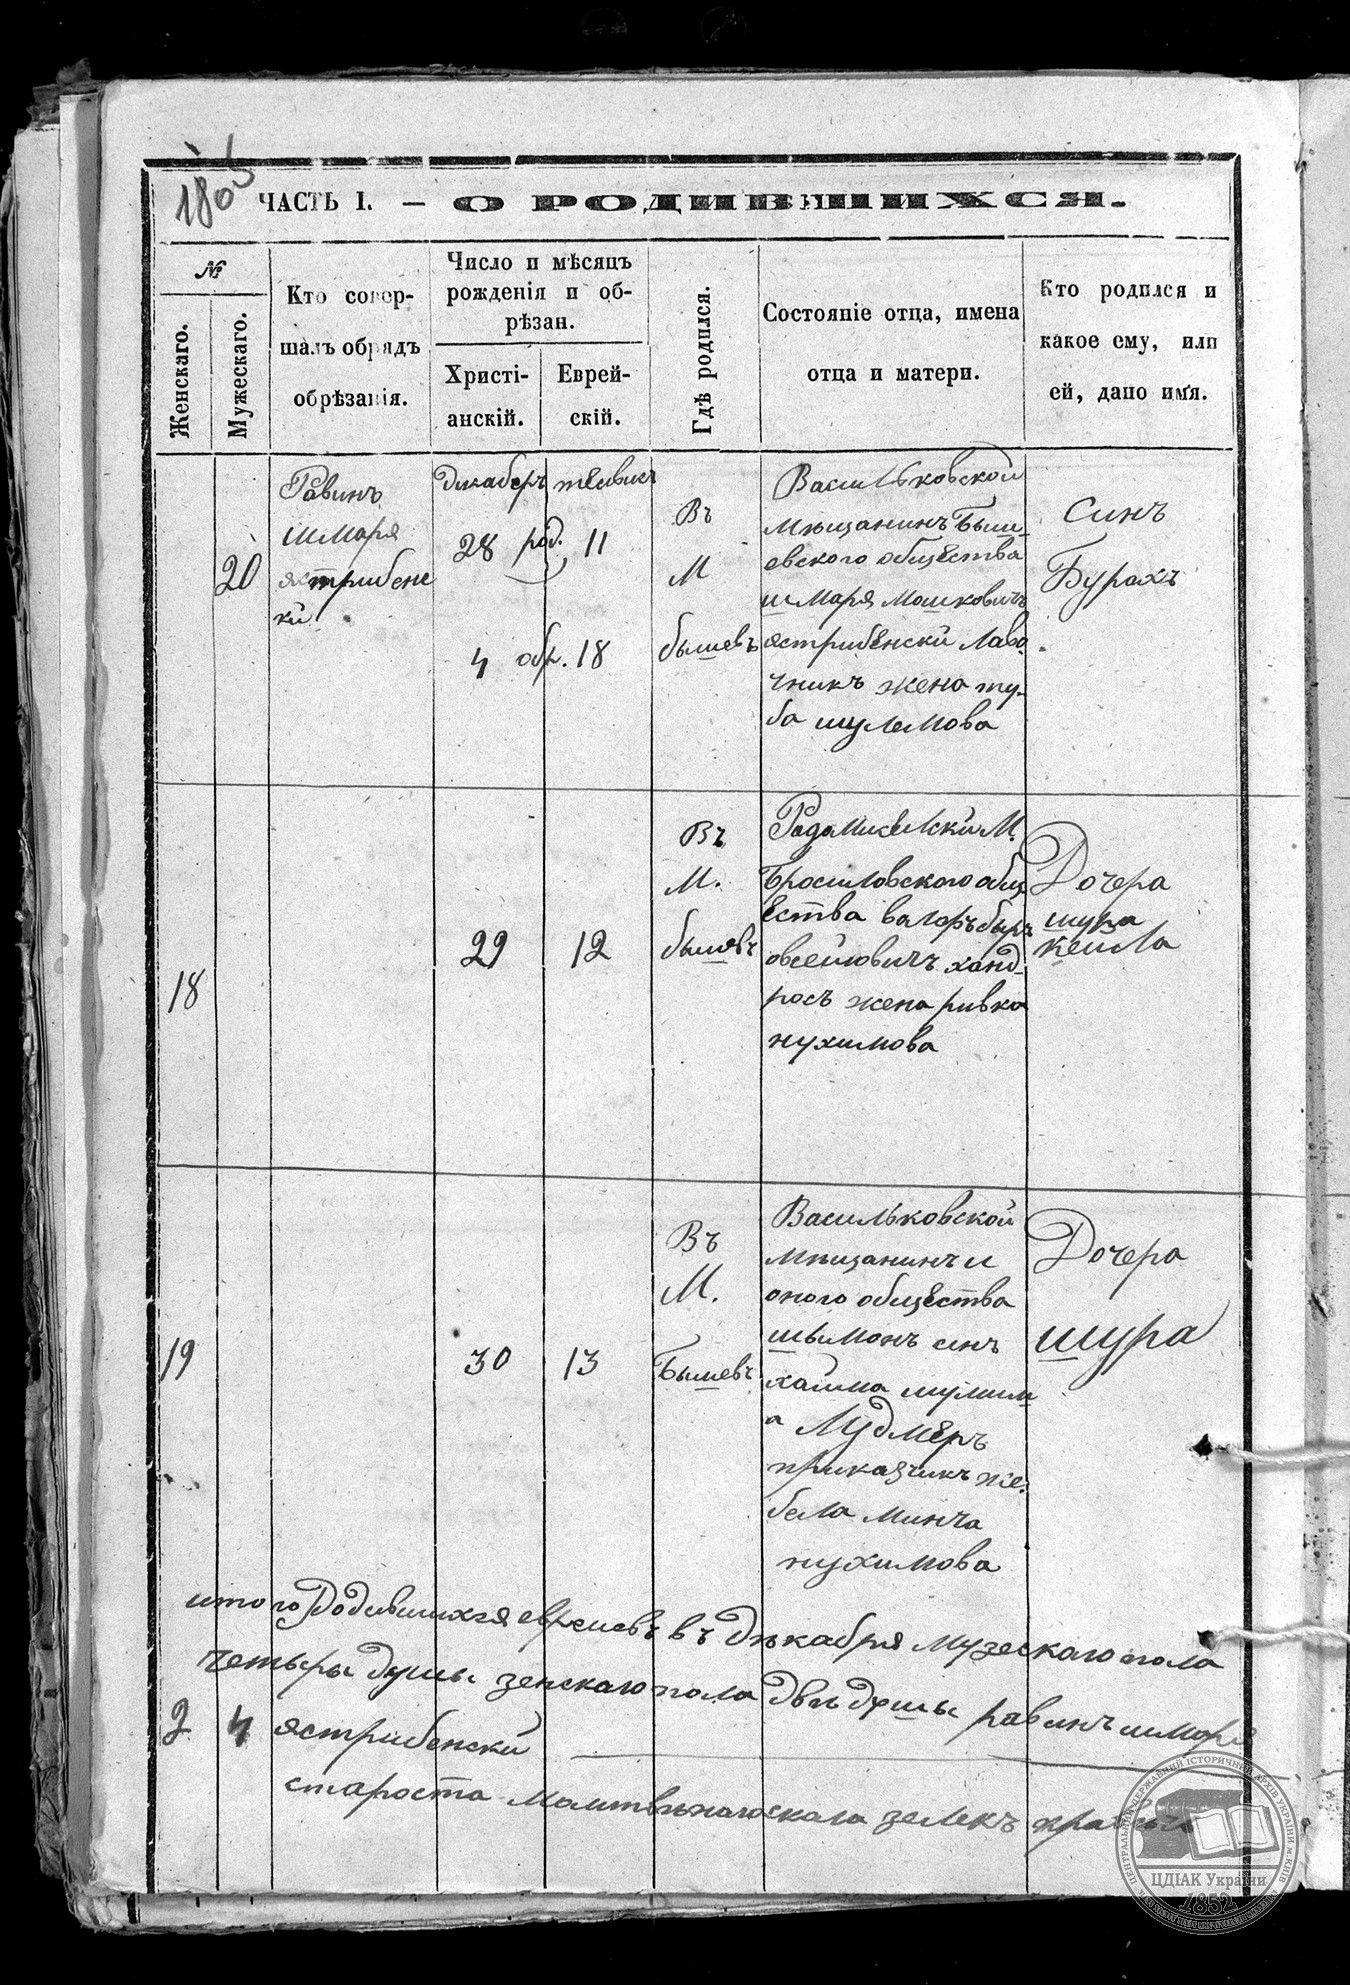 180
ЧАСТЬ I. — О РОДИВШИХСЯ.
№
Женскаго.
Мужескаго.
Кто совер-
шалъ обрядъ
обрѣзанія.
Число и мѣсяцъ
рожденія и об-
рѣзан.
Христі-
анскій.
Еврей-
скій.
Гдѣ родился.
Состояніе отца, имена
отца и матери.
Кто родился и
какое ему, или
ей, дано имя.
20
Равинъ
шмаря
ястрибенс
ки
Декабер
28 род. 11
4 обр. 18
Въ
М
бышевъ
Васильковской
мещанинъ Быш
евского общества
шмаря мошковичъ
ястрибенски лаво
чникъ жена ту-
ба шулемова
Синъ
Бурахъ
18
29
12
Въ
М.
бышевъ
М.
Бросиловского общ
ества
овсеиовичъ ханд
росъ жена ривка
нухимова
Дочера
шура
кейла
19
30
13
Въ
М.
Бышевъ
Васильковской
мещанинъ и
оного общества
шымонъ синъ
хаима шулим
а Лудмеръ
приказчикъ же.
бела минча
нухимова
Дочера
шура
итого Родившихся евреиевъ въ Декабря музескаго пола
четыры душы зенскаго пола две душы равинъ шмаря
2 4 ястрибенски
староста зелекъ
ЦЕНТРАЛЬНИЙ ДЕРЖАВНИЙ ІСТОРИЧНИЙ АРХІВ УКРАЇНИ м. КИЇВ
ЦДІАК України
1852